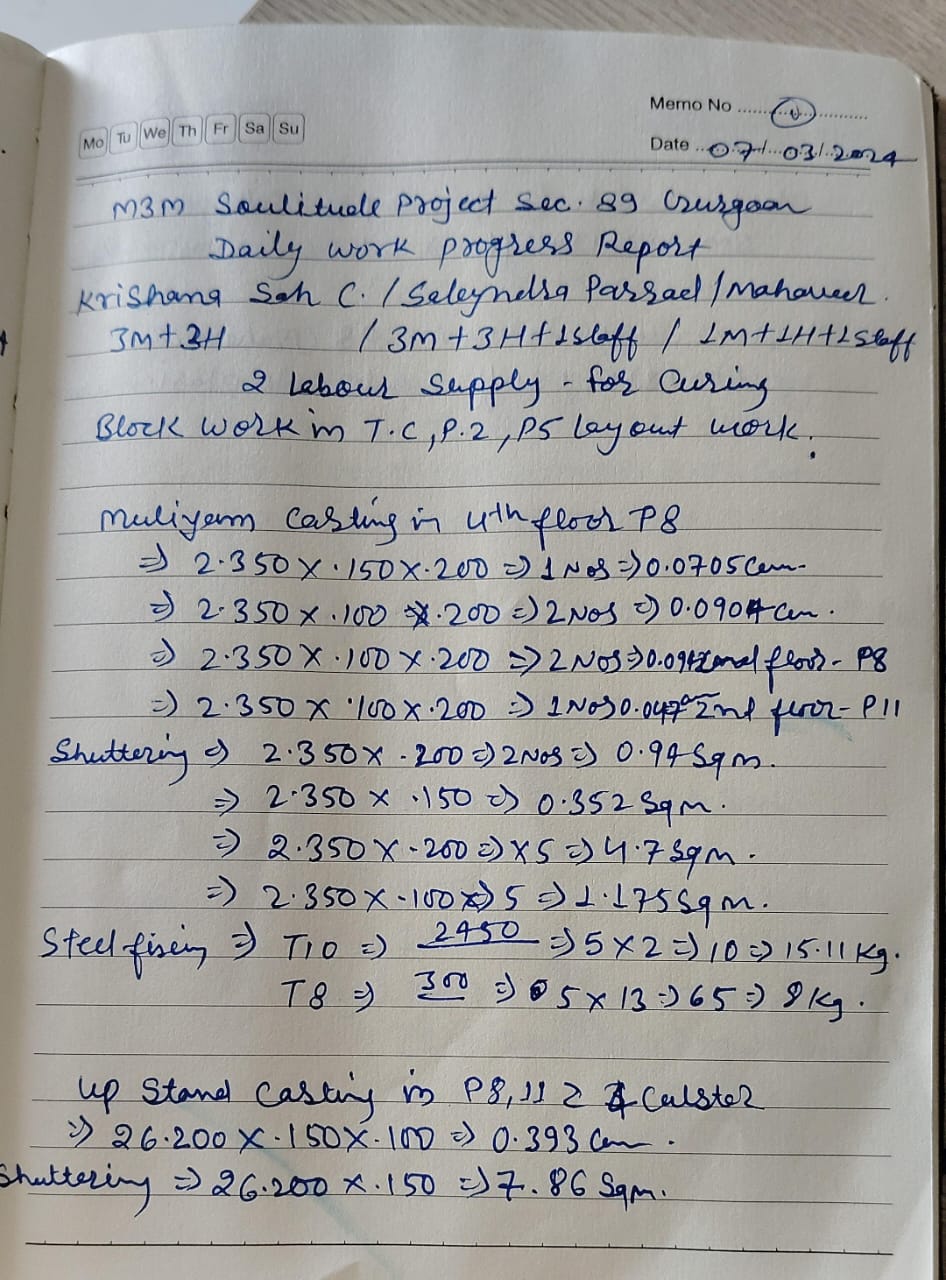 Memo No ...............
Mo Tu We Th Fr Sa Su
Date ..07/..03/..2024
M3M Soulitude Project Sec. 89 Gurgoan
Daily work progress Report
Krishana Sah C. / Saleyndra Parsad / Mahaveer.
3M+3H / 3M+3H+1staff / 1M+1H+1staff
2 Labour Supply - for Curing
Block work in T.C, P.2, P5 layout work.
Muliyam Casting in 4th floor P8
⇒ 2.350 x .150 x .200 ⇒ 1 Nos ⇒ 0.0705 Cum
⇒ 2.350 x .100 x .200 ⇒ 2 Nos ⇒ 0.0904 cum.
⇒ 2.350 x .100 x .200 ⇒ 2 Nos ⇒ 0.094 2nd floor - P8
⇒ 2.350 x .100 x .200 ⇒ 1 Nos 0.047 2nd floor - P11
Shuttering ⇒ 2.350 x .200 ⇒ 2 Nos ⇒ 0.94 Sqm.
⇒ 2.350 x .150 ⇒ 0.352 Sqm.
⇒ 2.350 x .200 ⇒ x 5 ⇒ 4.7 Sqm.
⇒ 2.350 x .100 ⇒ 5 ⇒ 1.175 Sqm.
Steel fixing ⇒ T10 ⇒ 2450 ⇒ 5 x 2 ⇒ 10 ⇒ 15.11 Kg.
T8 ⇒ 300 ⇒ 5 x 13 ⇒ 65 ⇒ 8 Kg.
Up Stand Casting in P8, 11 2 Calster
⇒ 26.200 x .150 x .100 ⇒ 0.393 Cum.
Shuttering ⇒ 26.200 x .150 ⇒ 7.86 Sqm.